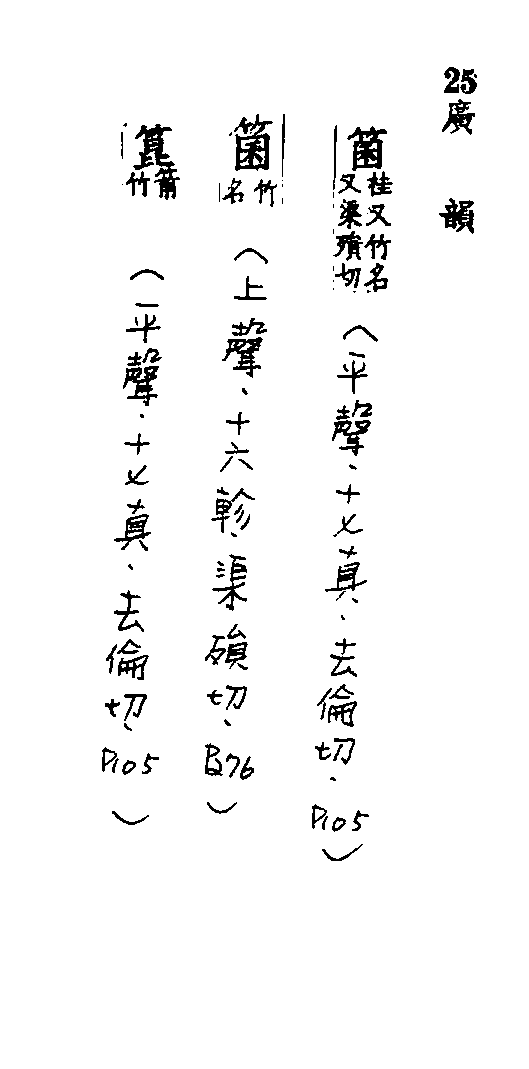 25廣韻
箘桂又竹名又渠殞切（平聲、十七真、去倫切、P105
）
箘竹名（上聲、十六軫、渠殞切、P276）
箟箭竹（平聲、十七真、去倫切、P105）